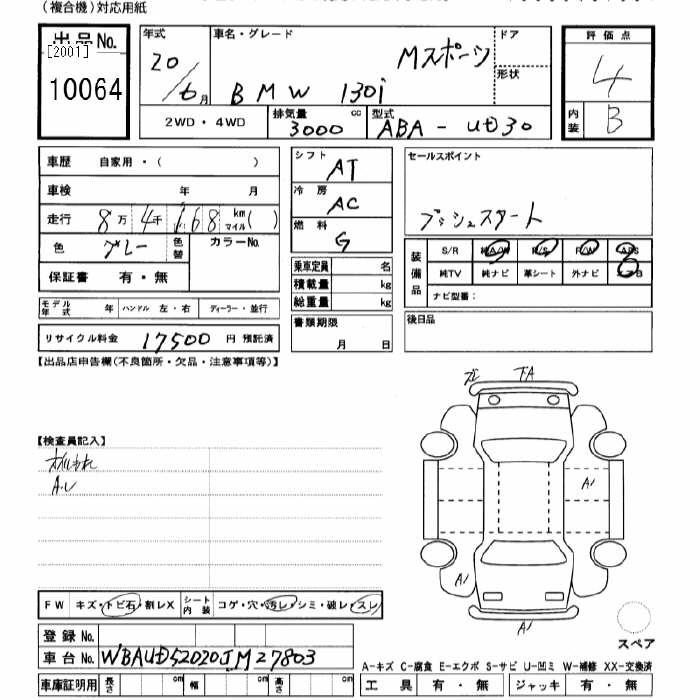 (複合機)対応用紙
出品No.
[2001]
10064
年式
20
/6月
車名・グレード
Mスポーツ
BMW 130i
ドア
形状
評価点
4
内装
B
2WD・4WD
排気量
3000
cc
型式
ABA-UD30
車歴 自家用・( )
車検 年 月
走行 8万4千168 km マイル( )
色 グレー 色替 カラーNo.
保証書 有・無
モデル年式 年 ハンドル 左・右 ディーラー・並行
リサイクル料金 17500 円 預託済
シフト AT
冷房 AC
燃料 G
乗車定員 名
積載量 kg
総重量 kg
書類期限
月 日
セールスポイント
プッシュスタート
装備品
S/R 純A/W P/S P/W ABS
純TV 純ナビ 革シート 外ナビ エアB
ナビ型番:
後日品
【出品店申告欄(不良箇所・欠品・注意事項等)】
【検査員記入】
A・レ
下A
A1
A1
A1
スペア
FW キズ・トビ石・割レX シート内装 コゲ・穴・汚レ・シミ・破レ・スレ
登録No.
車台No. WBAUD52020JM27803
車庫証明用 長さ cm 幅 cm 高さ cm
A-キズ C-腐食 E-エクボ S-サビ U-凹ミ W-補修 XX-交換済
工具 有・無 ジャッキ 有・無